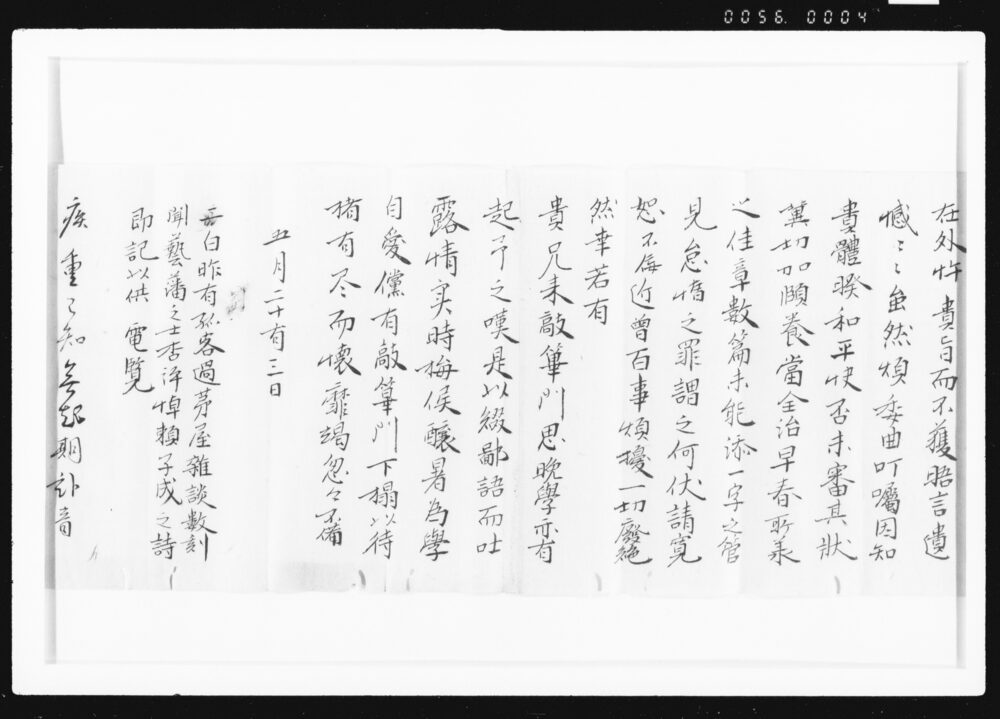 0056. 0004
在外忤 貴旨而不獲晤言遺
憾〻虽然煩委曲叮嘱因知
貴體暌和平快否未審其状
冀切加頤養當全治早春所示
之佳章数篇未能添一字之管
見怠惰之罪謂之何伏請寛
恕不侮近曽百事煩擾一切廢絶
然幸若有
貴兄来敲篳門思晩學亦有
起予之嘆是以綴鄙語而吐
露情实時梅候釀暑為學
自愛儻有敲篳門下榻以待
楮有尽而懐靡竭忽々不備
五月二十有三日
再白昨有孤客過茅屋雜談数刻
聞藝藩之士杏坪悼頼子成之詩
即記以供 電覧
疾重已知無起期訃音